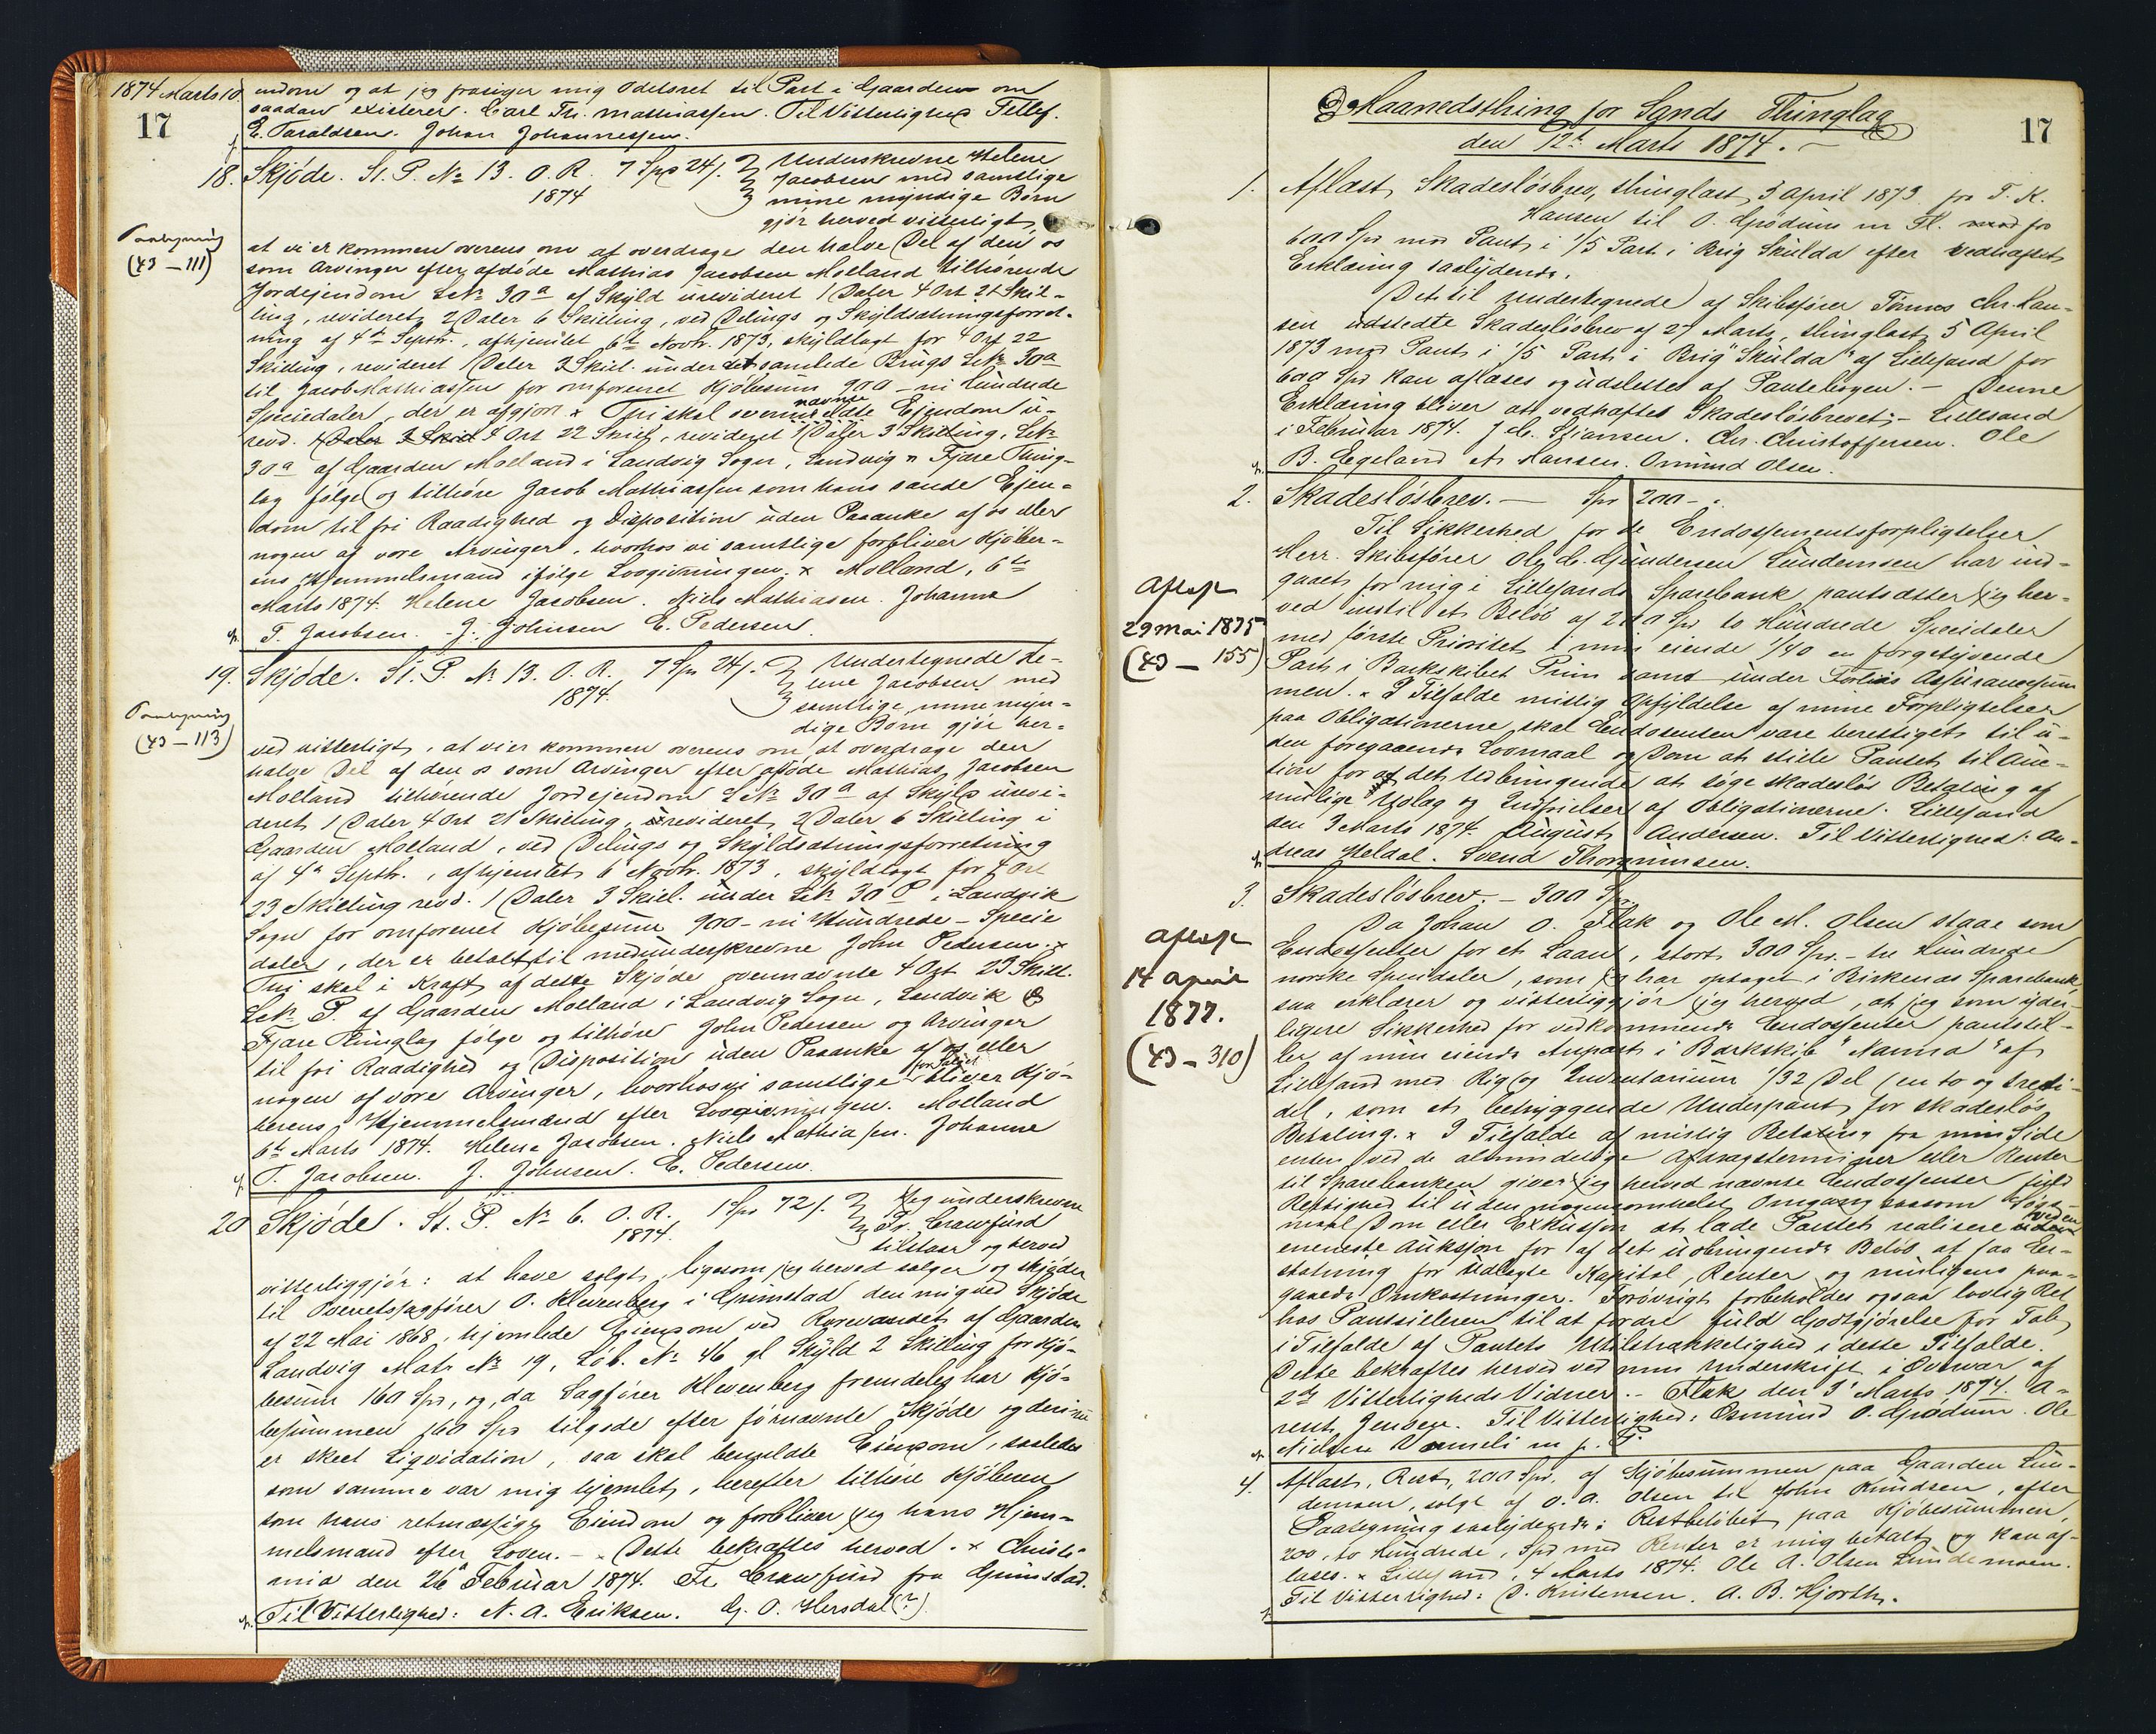 1874 Marts 10.
17
endom og at jeg frasiger mig Odelsret til Part i Gaarden om
saadan existerer. Carl Fr. Mathiassen. Til Vitterlighed Tellef.
E. Taraldsen. Johan Johannessen.
18. Skjöde. St. P. No 13. O. R. 7 Spd 24 /. Underskrevne Helene
1874 Jacobsen med samtlige
mine myndige Børn
gjör herved vitterligt,
(43 — 111)
at vi er kommen overens om at overdrage den halve Del af den os
som Arvinger efter afdöde Mathias Jacobsen Molland tilhørende
Jordejendom LNo 30a af Skyld urevideret 1 Daler 4 Ort 21 Skil-
ling, revideret 2 Daler 6 Skilling, ved Delings og Skyldsætningsforret-
ning af 4de Septbr., afhjemlet 6te Novbr. 1873, skyldlagt for 4 Ort 22
Skilling, revideret 1 Daler 3 Skil. under det samlede Brugs LNo 30a
til Jacob Mathiassen for omforenet Kjöbesum 900 – ni Hundrede
Speciedaler, der er afgjort. Thi skal ovennævnte Ejendom u-
revd. 4 Ort 22 Skil, revideret 1 Daler 3 Skilling, LNo
30a af Gaarden Molland i Landvig Sogn, Landvig n Fjære Thing-
lag følge og tilhøre Jacob Mathiassen som hans sande Ejen-
dom til fri Raadighed og Disposition uden Paaanke af os eller
nogen af vore Arvinger, hvorhos vi samtlige forbliver Kjöber-
ens Hjemmelsmænd ifölge Lovgivningen. x Molland, 6te
Marts 1874. Helene Jacobsen. Niels Mathiasen. Johanna
T. Jacobsen. J. Johnsen E. Pedersen.
19. Skjöde. St. P. No 13. O. R. 7 Spd 24 /. Undertegnede He-
1874. lene Jacobsen med
samtlige mine myn-
dige Børn gjör her-
(43 — 113)
ved vitterligt, at vi er kommen overens om at overdrage den
halve Del af den os som Arvinger efter afdöde Mathias Jacobsen
Molland tilhørende Jordejendom LNo 30a af Skyld urevi-
deret 1 Daler 4 Ort 21 Skilling, revideret 2 Daler 6 Skilling i
Gaarden Molland, ved Delings og Skyldsætningsforretning
af 4de Septbr., afhjemlet 6 Novbr. 1873, skyldlagt for 4 Ort
23 Skilling revd. 1 Daler 3 Skil. under LNo 30 P i Landvik
Sogn for omforenet Kjöbesum 900 – ni Hundrede – Specie
daler, der er betalt til medunderskrevne John Pedersen. x
Thi skal i Kraft af dette Skjöde ovennævnte 4 Ort 23 Skill.
LNo P. af Gaarden Molland i Landvig Sogn, Landvik &
Fjære Thinglag fölge og tilhøre John Pedersen og Arvinger
til fri Raadighed og Disposition uden Paaanke af os eller
nogen af vore Arvinger, hvorhos vi samtlige bliver Kjö-
berens Hjemmelsmænd efter Lovgivningen. Molland
6te Marts 1874. Helene Jacobsen. Niels Mathiassen. Johanne
T. Jacobsen. J. Johnsen. E. Pedersen.
20 Skjöde. St. P. No 6. O. R. 1 Spd 72 /. Jeg underskrevne
1874. Fr. Crawfurd
tilstaar og herved
vitterliggjör: at have solgt, ligesom jeg herved sælger og skjöder
til Overretssagförer O. Klevenberg i Grimstad den mig ved Skjöde
af 22 Mai 1868, hjemlede Eiendom ved Rorevandet af Gaarden
Landvig Matr No 19, Löb. No 46 gl Skyld 2 Skilling for Kjö-
besum 160 Spd, og, da Sagförer Klevenberg fremdeles har Kjö-
besummen 160 Spd tilgode efter förnævnte Skjöde og deri nu
er skeet Liqvidation, saa skal bemeldte Eiendom, saaledes
som samme var mig hjemlet, herefter tilhøre Kjöberen
som hans retmæssige Eiendom og forbliver jeg hans Hjem-
melsmand efter Loven. – x Dette bekræftes herved. x Christi-
ania den 26 Februar 1874. Fr. Crawfurd fra Grimstad.
Til Vitterlighed: N. A. Eriksen. G. O. Hersdal (?)
Maanedsthing for Sands Thinglag
den 12te Marts 1874. –
17
1. Aflæst, Skadeslösbrev, thinglæst 5 April 1873 fra T. K.
Hansen til O. Grödum m Fl. for
600 Spd mod Pant i 1/5 Part i Brig Skulda efter vedhæftet
Erklæring saalydende.
Det til undertegnede af Skibsförer Tönnes Chr. Han-
sen udstedte Skadeslösbrev af 27 Marts, thinglæst 5 April
1873 med Pant i 1/5 Part i Brig "Skulda" af Lillesand for
600 Spd kan aflæses og udslettes af Pantebogen. – Denne
Erklæring bliver at vedhæftes Skadeslösbrevet. – Lillesand
i Februar 1874. Chr. Christoffersen. Ole
B. Egeland. Hansen. Omund Olsen.
2. Skadeslösbrev. — Spd 200 –.
Til Sikkerhed for de Endossementsforpligtelser
Herr. Skibsförer Ole C. Gundersen Lundemoen har ind-
gaaet for mig i Lillesands Sparebank pantsætter jeg her-
ved indtil et Belöb af 200 Spd to Hundrede Speciedaler
med förste Prioritet i min eiende 1/40 enförgetyvende
Part i Barkskibet Prim samt under Forliis Assurancesum
men. x I Tilfælde mislig Opfyldelse af mine Forpligtelser
paa Obligationerne skal Endosenten være berettiget til u-
den foregaaende Lovmaal og Dom at stille Pantet til Auc-
tion for af det Udbringende at söge skadeslös Betaling af
mulige Udlæg og Indfrielser af Obligationerne. Lillesand
den 3 Marts 1874. August Andersen. Til Vitterlighed: An-
dreas Heldal. Svend Thommimsen.
Aflæst
29 Mai 1875
(43 — 155)
3. Skadeslösbrev. – 300 Spd
Da Johan O. Flak og Ole M. Olsen staae som
Endossenter for et Laan, stort 300 Spd. – tre Hundrede
norske Speciedaler, som jeg har optaget i Birkenæs Sparebank,
saa erklærer og vitterliggjör jeg herved, at jeg som yder-
ligere Sikkerhed for vedkommende Endossenter pantstil-
ler af min eiende Anpart i Barkskib "Nanna" af
Lillesand med Rig og Inventarium 1/32 Del (en to og tredi-
del, som et betryggende Underpant for skadeslös
Betaling. x I Tilfælde af mislig Betaling fra min Side
enten ved de almindelige Afdragsterminer eller Renter
til Sparebanken giver jeg herved nævnte Endossenter fuld
Rettighed til uden nogensomhelst Omgang saasom Sögs-
maal Dom eller Exekusjon at lade Pantet realisere ved en
eneneste Auksjon for af det udbringende Belöb at faa Er-
statning for udlagte Kapital, Renter og muligens paa-
gaaede Omkostninger. Forövrigt forbeholdes ogsaa lovlig Ret
hos Pantstilleren til at fordre fuld Godtgjörelse for Tab
i Tilfælde af Pantets Utilstrækkelighed i dette Tilfælde.
Dette bekræftes herved ved min Underskrift i Overvær af
2de Vitterligheds Vidner. – Flak den 3' Marts 1874. A-
rent Jensen. Til Vitterlighed: Osmund O. Grödum. Ole
Nielsen m. p. P.
Aflæst
14 April
1877.
(43 – 310)
4. Aflæst, Rest, 200 Spd, af Kjöbesummen paa Gaarden Lun-
demoen, solgt af O. A. Olsen til John Knudsen, efter
Paategning saalydende: Restbelöbet paa Kjöbesummen,
200, to Hundrede, Spd med Renter er mig betalt og kan af-
læses. x Lillesand, 4 Marts 1874. Ole A. Olsen Lundemoen.
Til Vitterlighed: D. Kristensen. A. B. Hjorth.